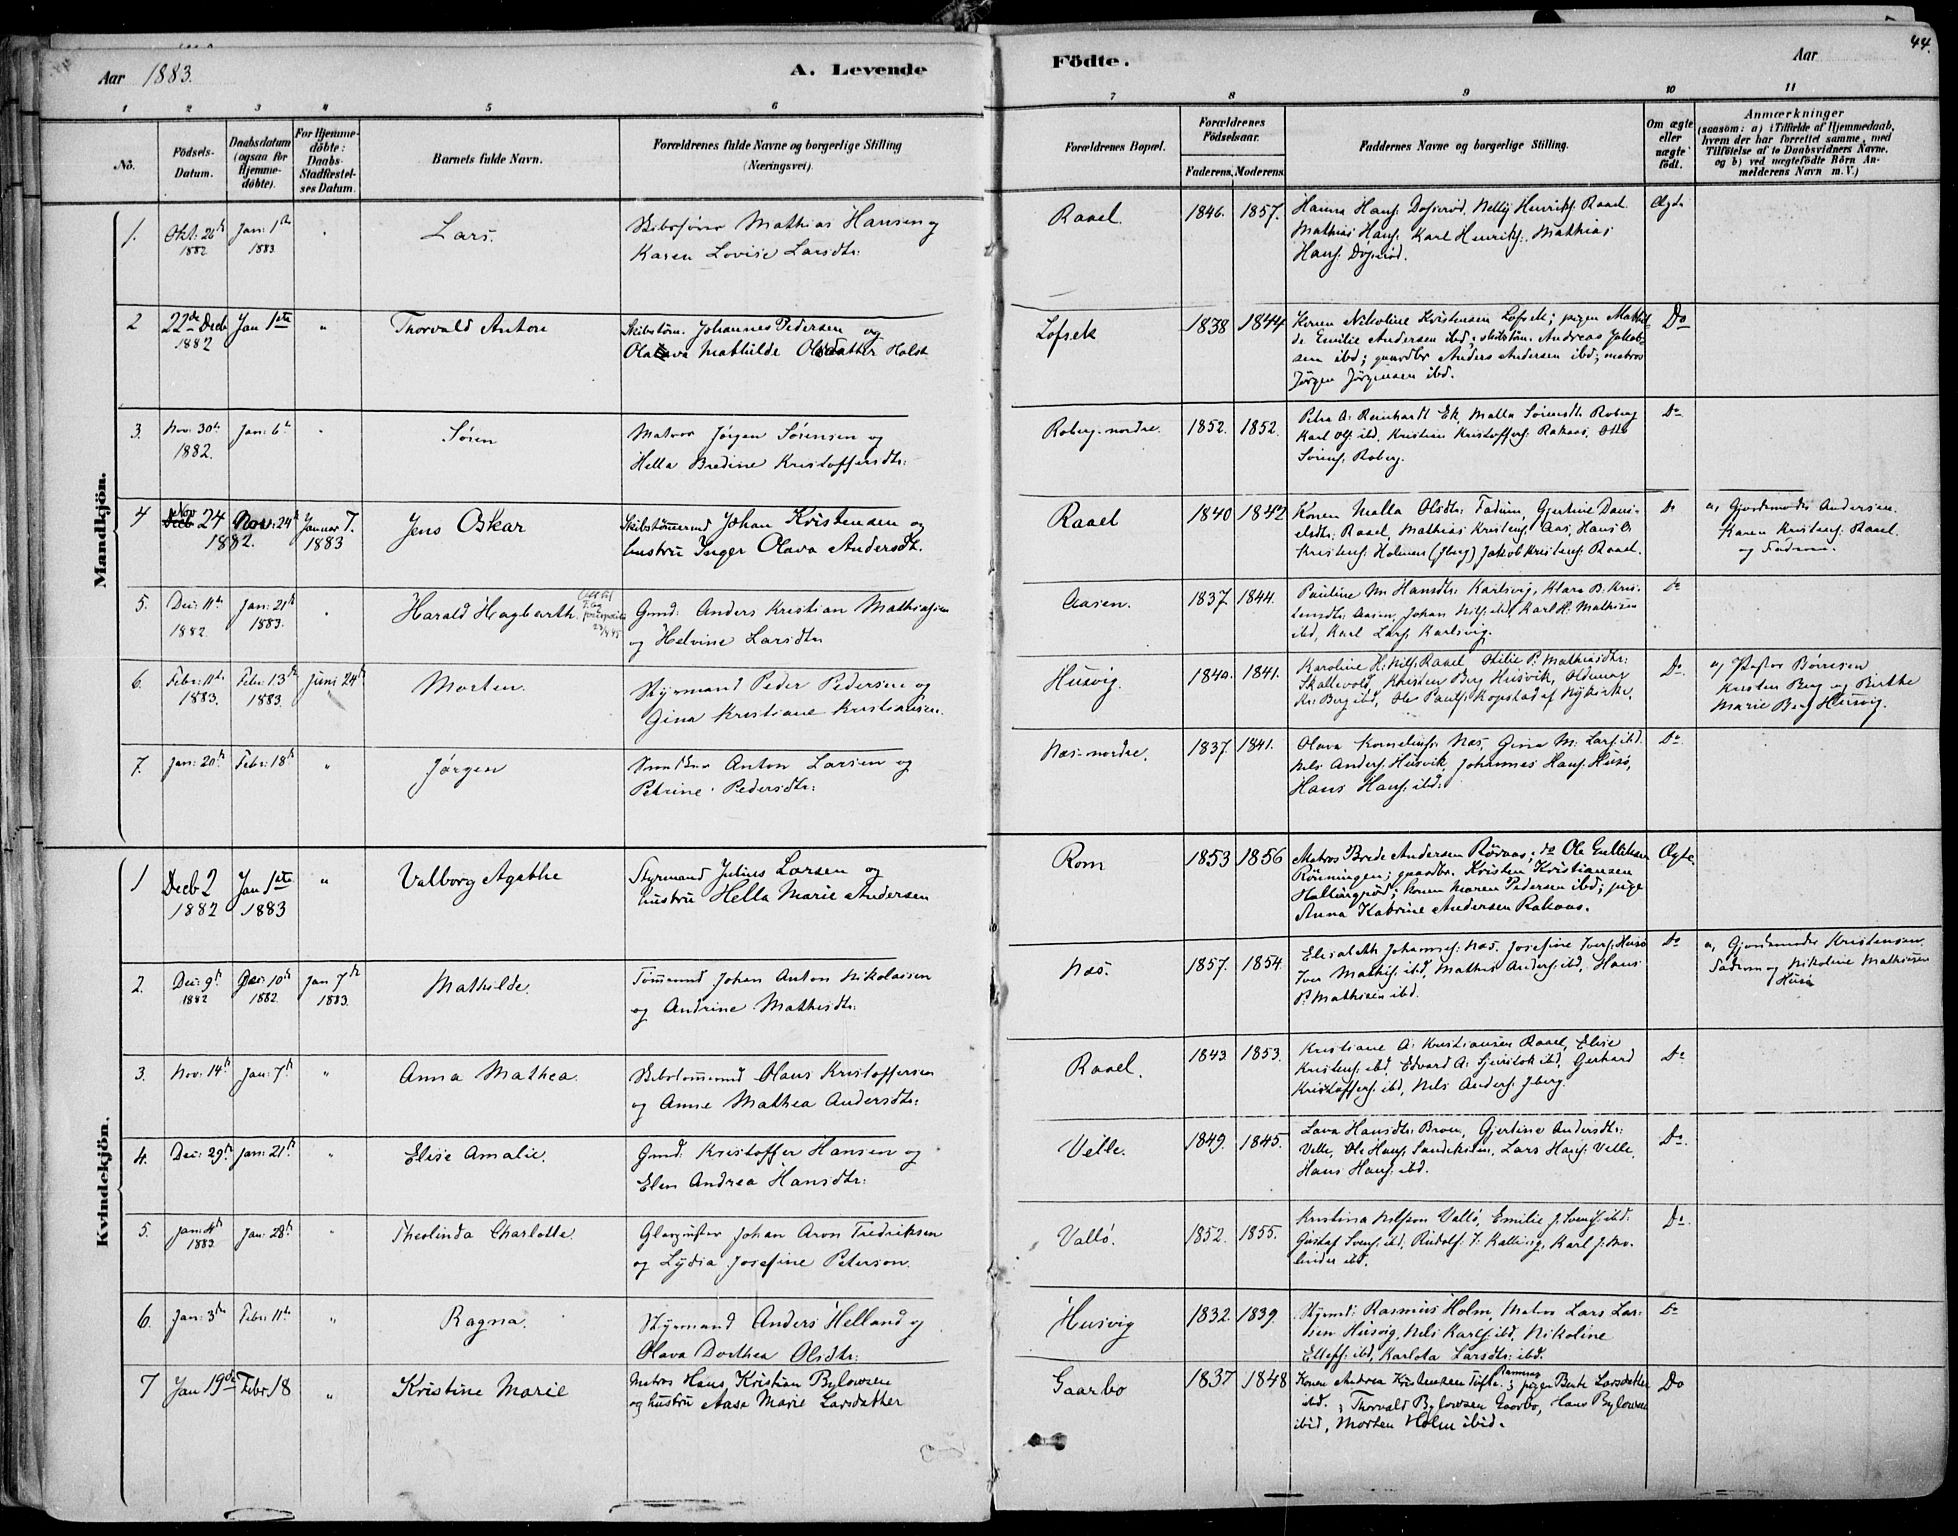 44.
Aar 1883.
A. Levende
Födte.
Aar
1 2 3 4 5 6 7 8 9 10 11
No.
Födsels-Datum.
Daabsdatum (ogsaa for Hjemme-döbte).
For Hjemme-döbte: Daabs-Stadfæstel-ses Datum.
Barnets fulde Navn.
Forældrenes fulde Navne og borgerlige Stilling (Næringsvei).
Forældrenes Bopæl.
Forældrenes Födselsaar.
Faderens. Moderens.
Faddernes Navne og borgerlige Stilling.
Om ægte eller uægte födt.
Anmærkninger
(saasom: a) i Tilfælde af Hjemmedaab, hvem der har forrettet samme, med Tilföielse af to Daabsvidners Navne, og b) ved uægtefödte Börn An-melderens Navn m. V.)
Mandkjön.
1. Okt: 26th 1882 Jan: 1th 1883 " Lars. Skibsfører Mathias Hansen og
Karen Lovise Larsdtr:
Raael. 1846. 1857. Hanna Hans: Døsserød, Nelly Henriks: Raael
Mathias Hans: Karl Henriks:, Mathias
Hans: Døsserød.
Ægte
2 22de Decb 1882 Jan 1ste " Thorvald Anton Skibstøm. Johannes Pedersen og
Olava Mathilde Olsdatter Holst
Lofsek 1838 1844 Konen Nikoline Kristensen Lofsek; pigen Mathil-
de Emilie Andersen ibd; skibstøm. Andreas Jakob-
sen ibd; gaardbr Anders Andersen ibd; matros
Jørgen Jørgensen ibd.
Do
3. Nov: 30th 1882. Jan: 6th " Søren Matros Jørgen Sørensen og
Hella Bredine Kristoffersdtr:
Roberg-nordre. 1852. 1852. Petra A: Reinhardt Ek, Malla Sørensdtr: Roberg
Karl Ols: ibd, Kristian Kristoffers: Rakaas, Otto
Sørens: Roberg.
Do
4 Nov 24 Nov: 24th 1882. Januar 7. 1883 Jens Oskar Skibstømmermd Johan Kristensen og
hustru Inger Olava Andersdtr.
Raael 1840 1842 Konen Malla Olsdtr: Fadum, Gjertine Dani-
elsdtr: Raael, Mathias Kristens: Aas, Hans O.
Kristens: Holmen (Iberg) Jakob Kristens: Raael.
Do
a, Gjordemoder Andersen.
Karen Kristens: Raael
og Fadum.
5. Dec: 11th 1882. Jan: 21th 1883. " Harald Hagbarth. Gmd: Anders Kristian Mathiassen
og Helvine Larsdtr
Aasen. 1837 1844. Pauline M. Hansdtr: Karlsvig, Klara B. Kris-
tensdtr: Aasen, Johan Nils: ibd, Karl H: Mathisen
ibd, Karl Lars: Karlsvig.
Do
6. Febr: 11th 1883. Febr: 13th 1883. Juni 24th Morten. Styrmand Peder Pedersen og
Gina Kristiane Kristiansen.
Husvig. 1840. 1841. Karoline H: Nils: Raael, Otilie P: Mathiasdtr:
Skallevold, Kristen Berg Husvik, Oldemar
Kr: Berg ibd, Ole Pauls: Kopstad af Nykirke.
Do.
a, Pastor Børresen
Kristen Berg og Birthe
Marie Berg Husvig.
7. Jan: 20th Febr: 18th " Jørgen Smed Anton Larsen og
Petrine Pedersdtr:
Næs-nordre. 1837. 1841. Olava Kornelius: Næs, Gina M: Lars: ibd.
Nels Anders: Husvik, Johannes Hans: Husø,
Hans Hans: ibd:
Do
Kvindekjön.
1 Decb 2 1882 Jan 1ste 1883 " Valborg Agathe Styrmand Julius Larsen og
hustru Hella Marie Andersen
Rom 1853 1856 Matros Brede Andersen Rødaas; do Ole Gulliksen
Rønningen; gaardbr. Kristen Kristiansen
Hallingrød; konen Maren Pedersen ibd; pige
Anna Katrine Andersen Rakaas.
Ægte
2. Dec: 9th 1882 Dec: 10th 1882. Jan 7th 1883. Mathilde. Tømmermd Johan Anton Nikolaisen
og Andrine Mathisdtr:
Næs. 1857. 1854. Elisabeth Johannes: Næs, Josefine Ivers: Husø
Iver Mathis: ibd, Mathis Anders: ibd, Hans
P: Mathisen ibd.
Do
a, Gjordemoder Kristensen.
Fadum og Nikoline Mathisen
Husø
3. Nov: 14th Jan: 7th " Anna Mathea. Skibstømmermd Hans Kristoffersen
og Anne Mathea Andersdtr:
Raael. 1843. 1853. Kristiane A: Kristiansen Raael, Elise
Kristens: ibd, Edvard A: Gjerstok ibd, Gerhard
Kristoffers: ibd, Nels Anders: Iberg.
Do
4. Dec: 29th Jan: 21th " Elise Amalie. Gmd: Kristoffer Hansen og
Elen Andrea Hansdtr:
Velle. 1849. 1845. Lava Hansdtr: Broen, Gjertine Andersdtr:
Velle, Ole Hans: Sandeksten, Lars Hans: Velle,
Hans Hans: ibd.
Do.
5. Jan: 4th 1883. Jan: 28th " Theolinda Charlotte Glaspuster Johan Aron Fredriksen
og Lydia Josefine Peterson.
Vallø. 1852. 1855. Kristina Nilsson Vallø, Emilie J. Svens: ibd:
Gustaf Svens: ibd, Rudolf J: Kalling, Karl J: Mo-
linder ibd.
Do.
6. Jan: 3th Febr: 11th " Ragna. Styrmand Anders Helland og
Olava Dorthea Olsdtr:
Husvig 1832. 1839. Styrmd: Rasmus Holm, Matros Lars Lar-
sen Husvig, Nels Karls: ibd, Nikoline
Ellefs: ibd, Karlota Larsdtr: ibd.
Do
7 Jan 19de Febr. 18 " Kristine Marie Matros Hans Kristian Bylowsen
og hustru Aase Marie Larsdatter
Gaarbo 1837 1848 Konen Andrea Kristensen Tufte; pigen Berte Larsdatter
ibd.; Thorvald Bylowsen Gaarbo, Hans Bylowsen
ibid, Morten Holm ibid.
Do